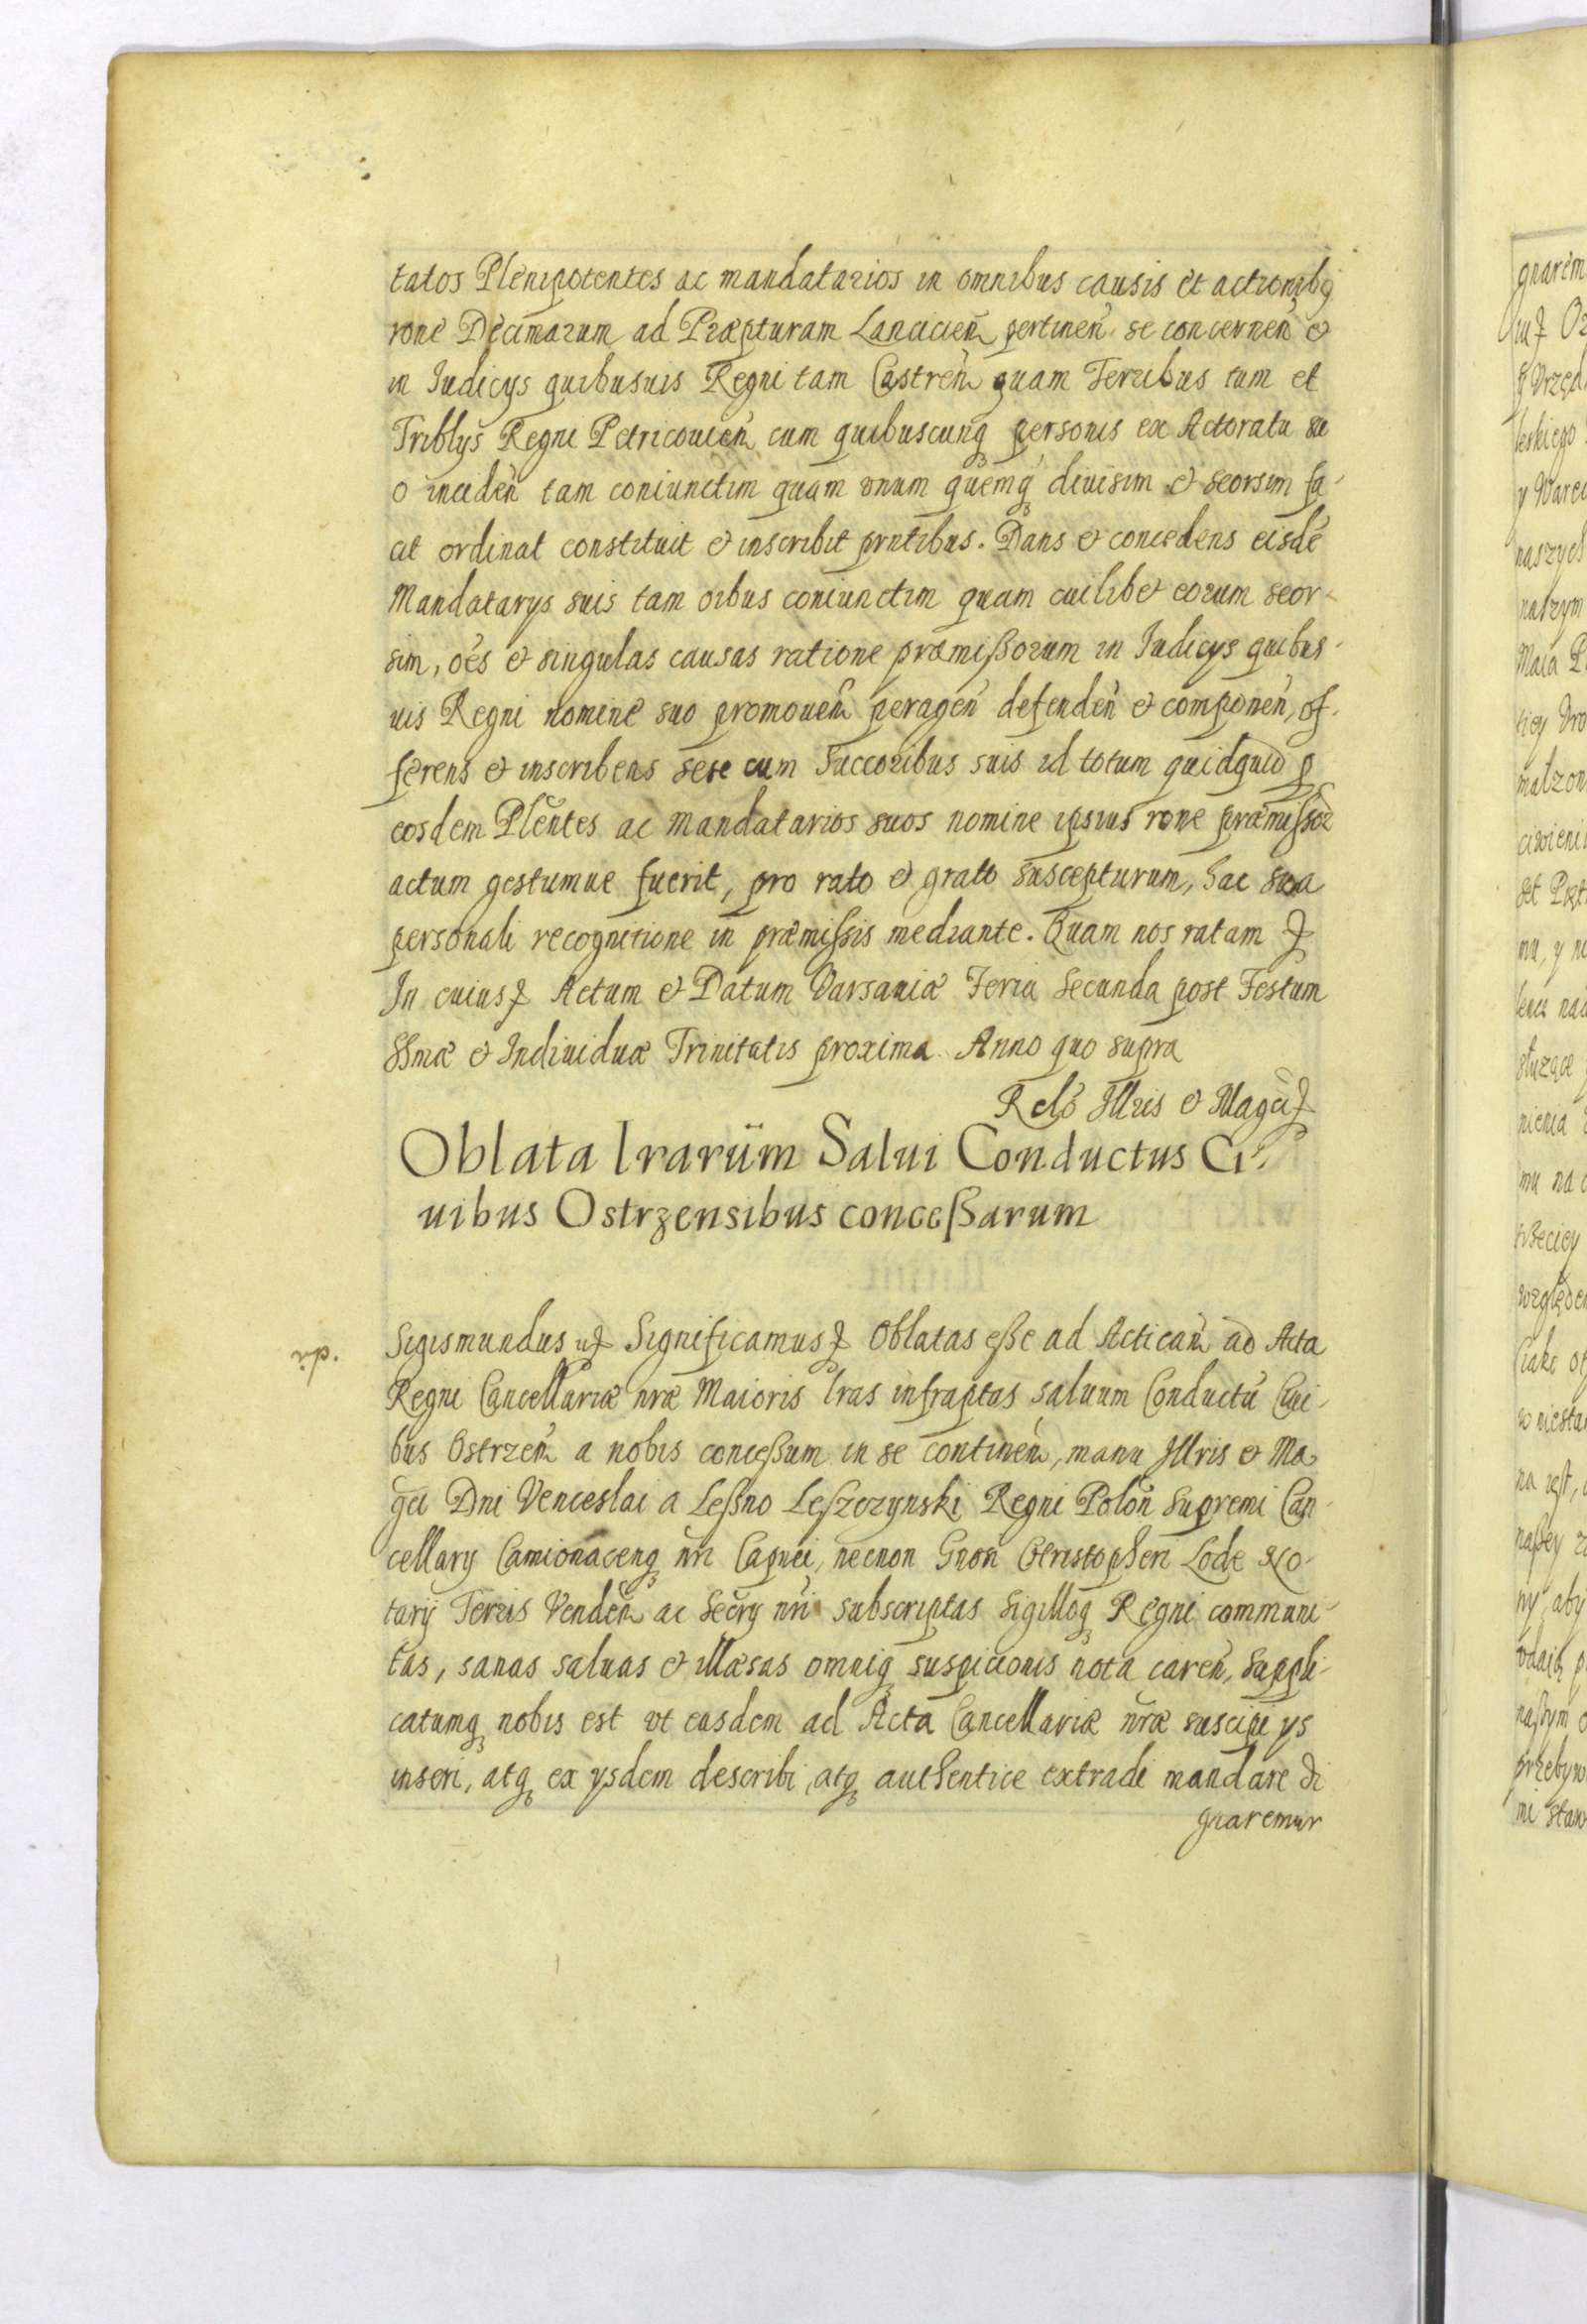 tatos Plenipotentes ac mandatarios in omnibus causis et actionibq
rone Decimarum ad Præpturam Lancicien̄ pertinen̄ se concernen̄ &
in Iudicijs quibusuis Regni tam Castren̄ quam Terribus tum et
Triblijs Regni Petricouien̄ cum quibuscunq personis ex Actoratu su
o inciden̄ tam coniunctim quam vnum quemq diuisim & seorsim fa-
cit ordinat constituit & inscribit prntibus. Dans & concedens eisdē
Mandatarijs suis tam oibus coniunctim quam cuilibet eorum seor-
sim, oēs & singulas causas ratione præmißorum in Iudicijs quibus-
uis Regni nomine suo promouen̄ peragen̄ defenden̄ & componen̄, of-
ferens & inscribens sese cum Succoribus suis id totum quidquid p
eosdem Plēntes ac mandatarios suos nomine ipsius rone præmissor
actum gestumue fuerit, pro rato & grato suscepturum, hac sua
personali recognitione in præmissis mediante. Quam nos ratam ꝛc
In cuius ꝛc Actum & Datum Varsauiæ Feria Secunda post Festum
SSmæ & Indiuiduæ Trinitatis proxima Anno quo supra
Relō Illris & Magci ꝛc
Oblata lrarüm Salui Conductus Ci-
uibus Ostrzensibus conceßarum
Sigismundus ut ꝛc Significamus ꝛc Oblatas eße ad Actican̄ ad Acta
Regni Cancellariæ nræ Maioris lras infraptas saluum Conductū Ciui-
bus Ostrzen̄ a nobis conceßum in se continen̄, manu Illris & Ma-
gci Dni Venceslai a Leßno Leszczynski Regni Polon̄ Supremi Can-
cellarij Camionacenq nri Capnei, necnon Gnosi Christopheri Lode No-
tarij Terris Venden̄ ac Secrij nri subscriptas Sigilloq Regni communi-
tas, sanas saluas & illæsas omniq suspicionis nota caren̄, Suppli-
catumq nobis est vt easdem ad Acta Cancellariæ nræ suscipi ijs
inseri, atq ex ijsdem describi, atq authentice extradi mandare di
gnaremur